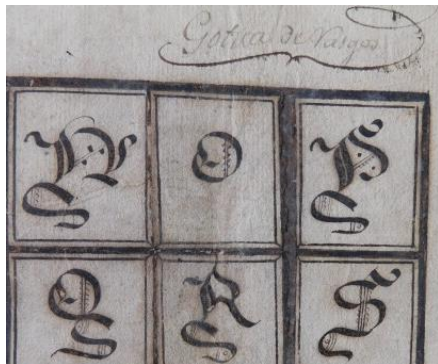 Gotica de Rasgos
N O P
Q R S